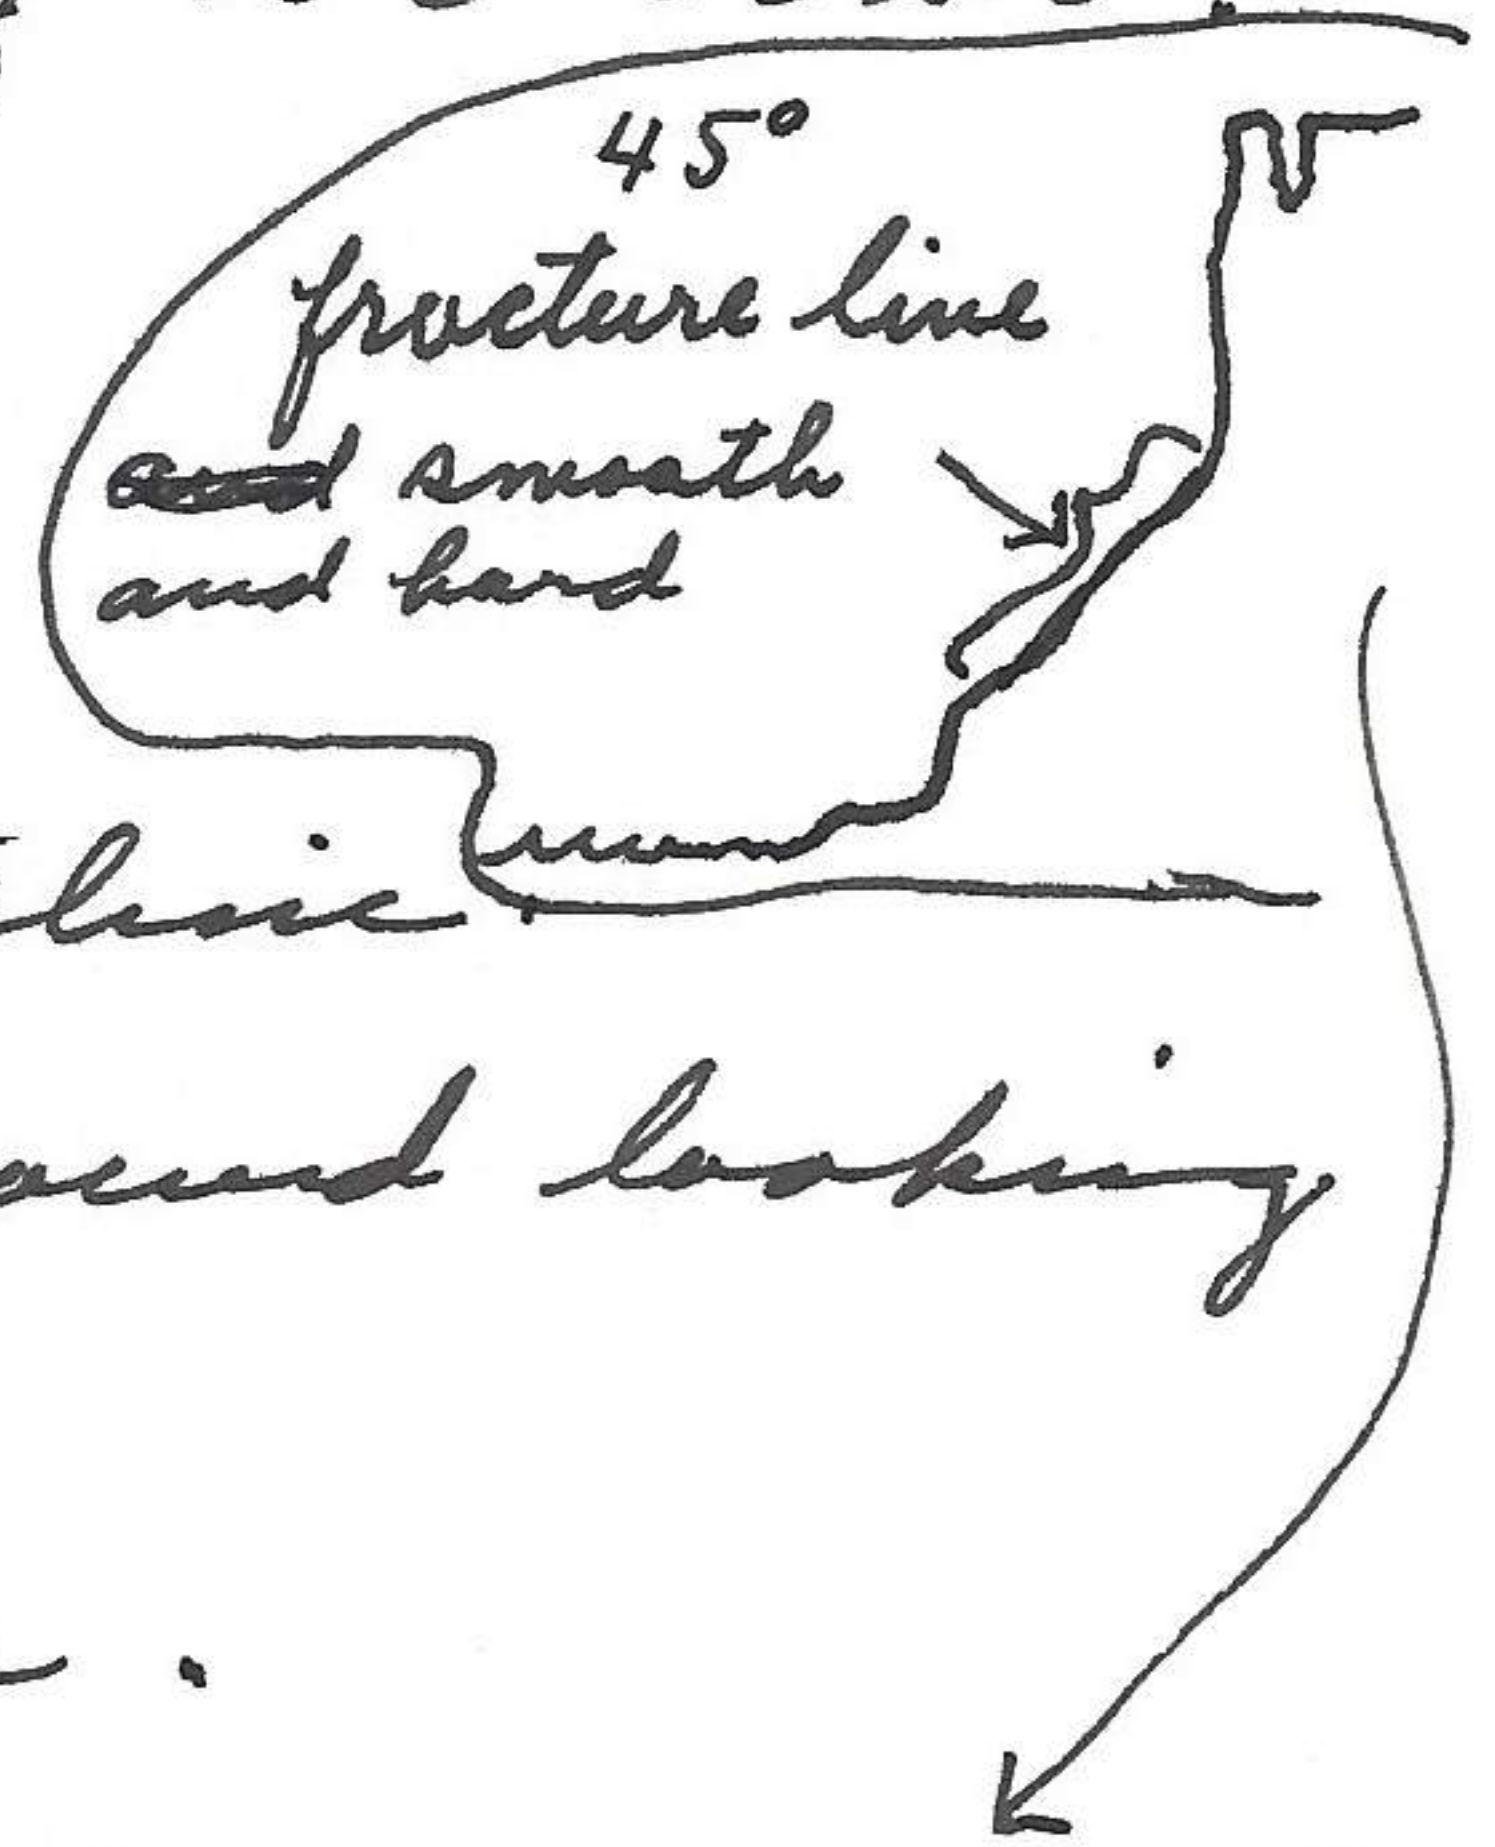 45°
fracture line
smooth
and hard
line
looking